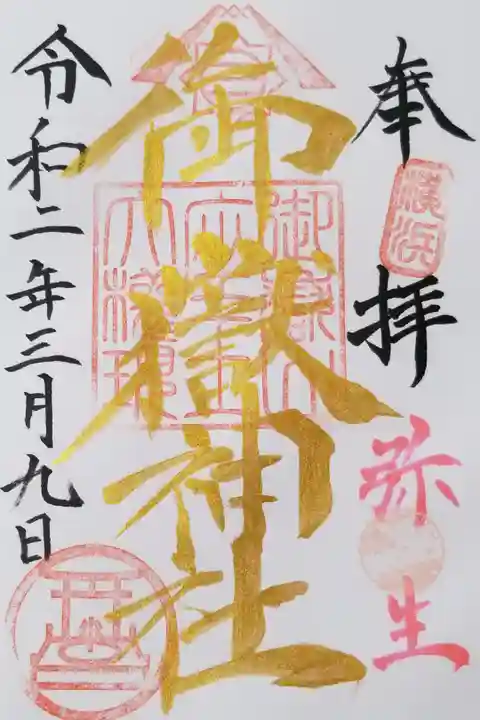 奉拝
横浜
弥生
御嶽神社
御嶽山
大権現
令和二年三月九日